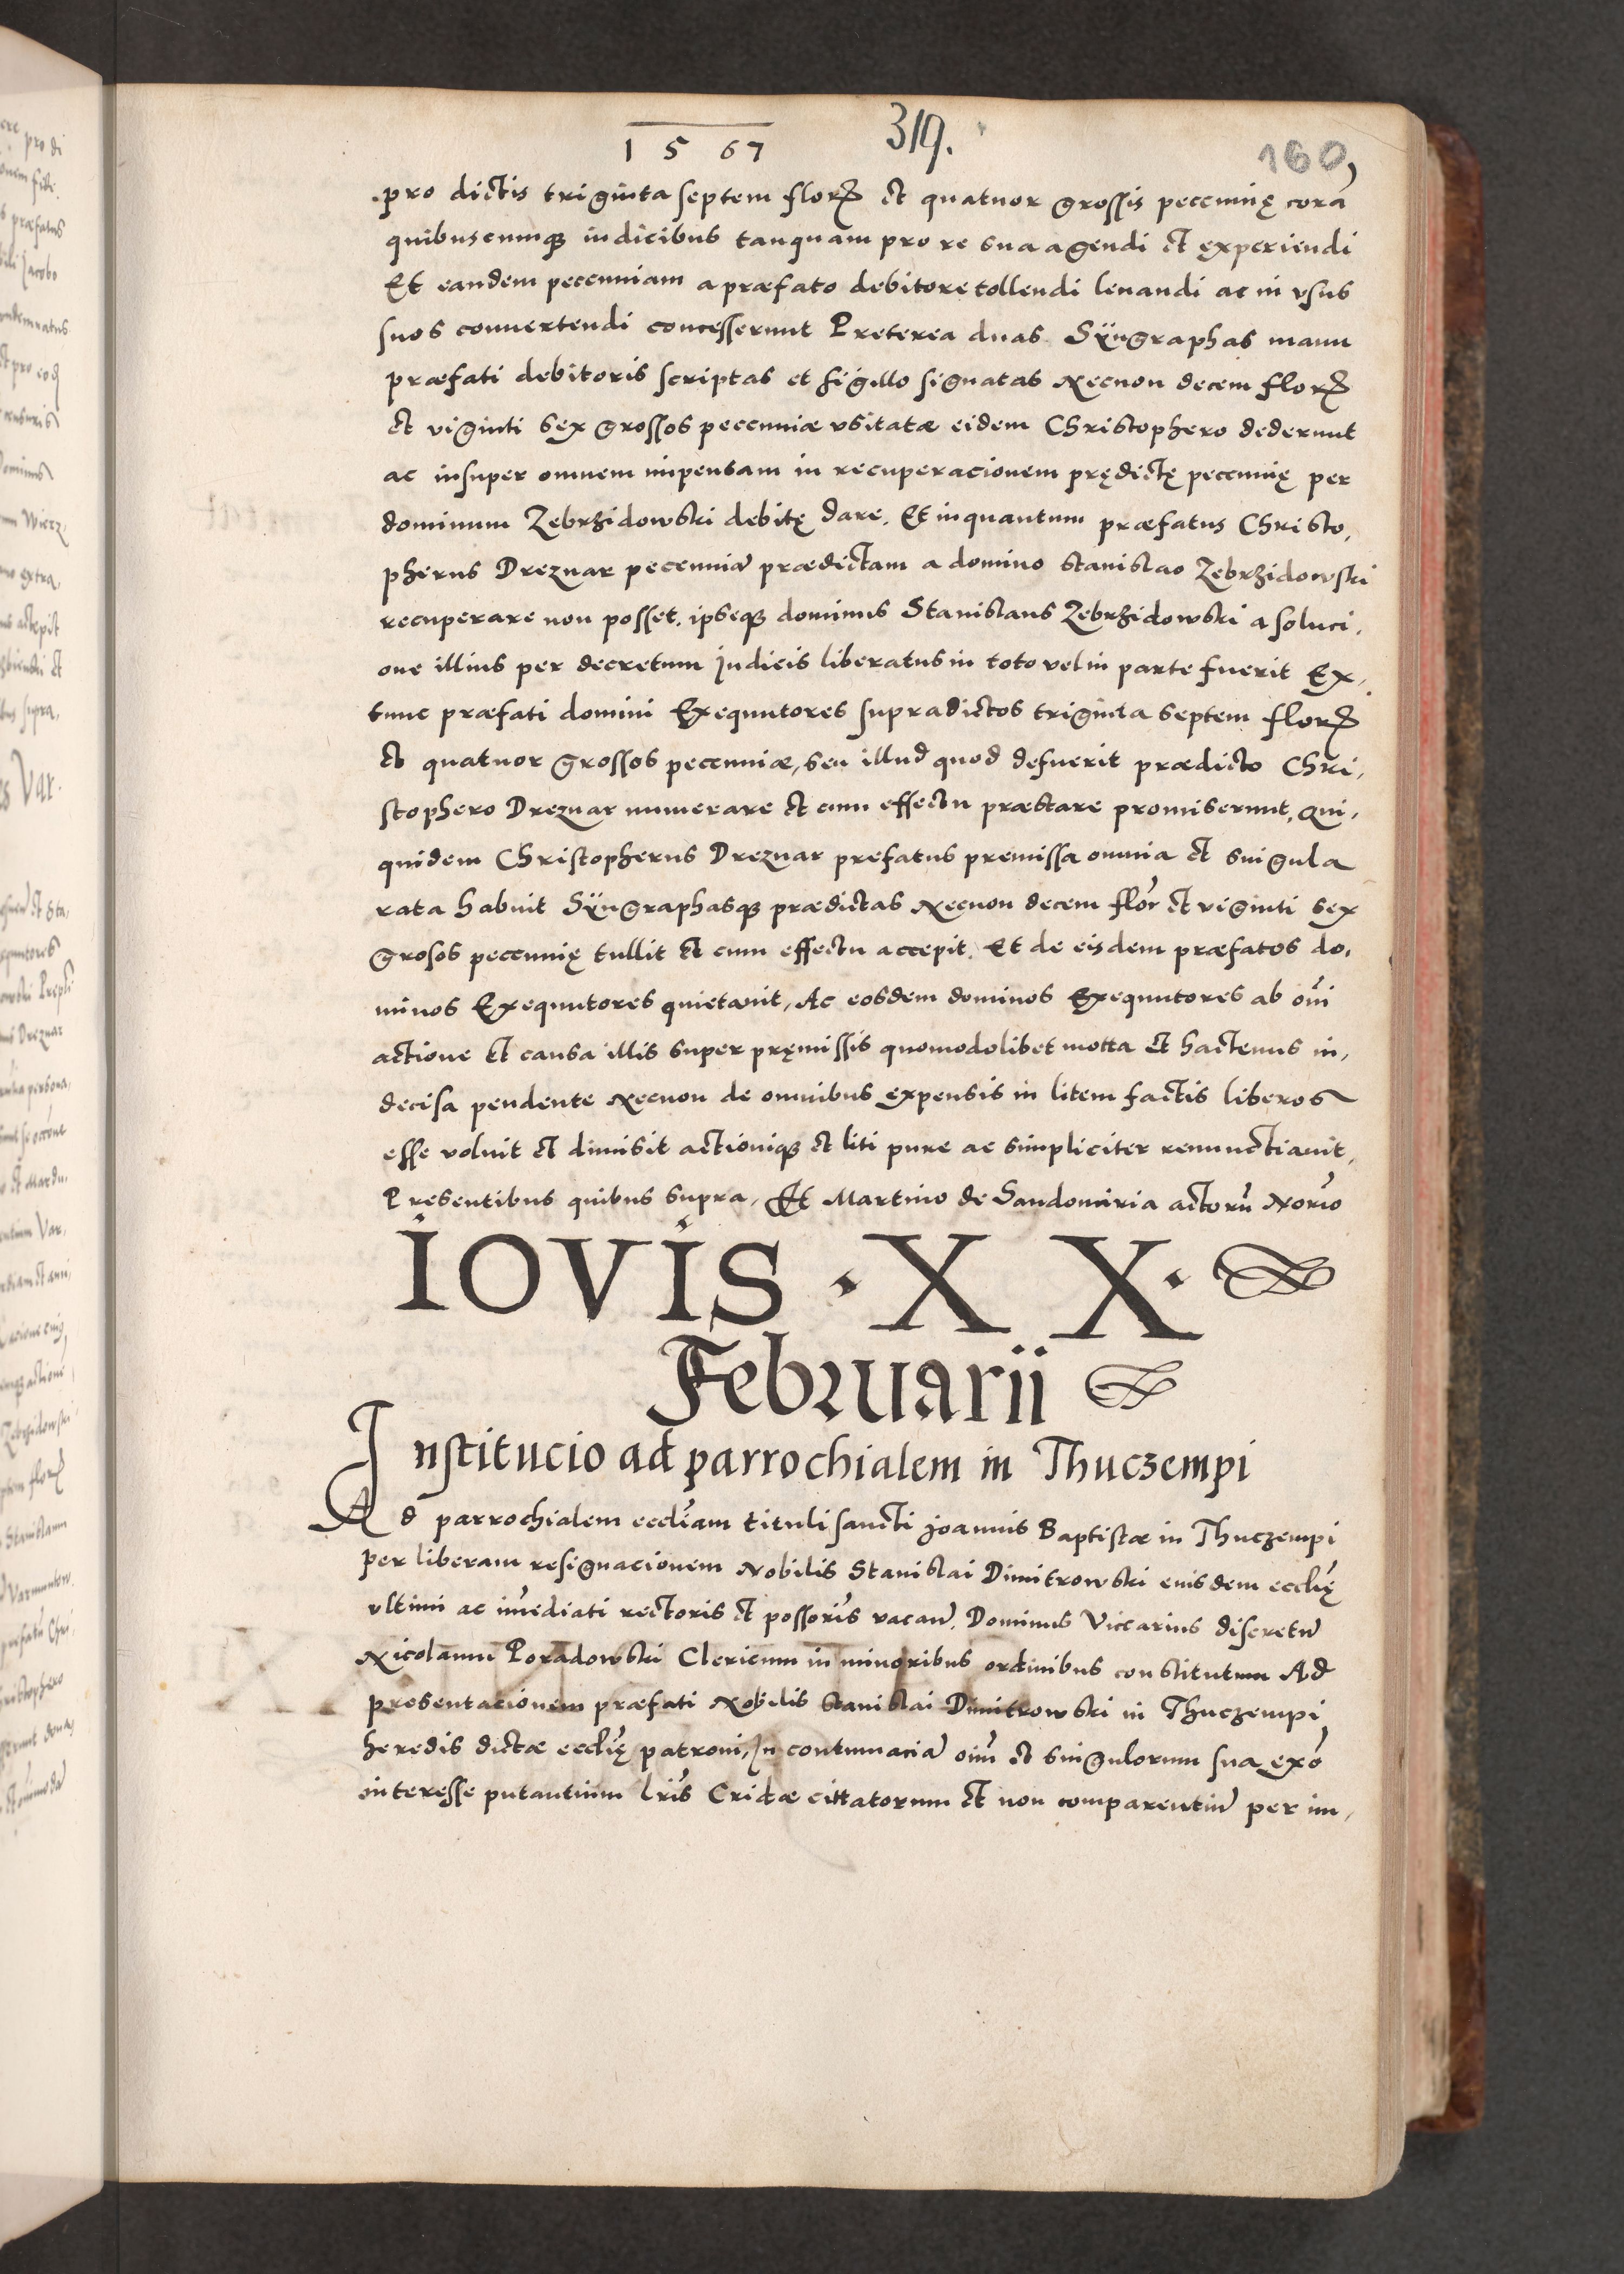 1567 319. 160
pro dictis triginta septem flor et quatuor grossis peccunię corā
quibuscumq iudicibus tanquam pro re sua agendi et experiendi
Et eandem peccuniam a præfato debitore tollendi leuandi ac in vsus
suos conuertendi concesserunt Preterea duas Sÿngraphas manu
præfati debitoris scriptas et sigillo signatas Necnon decem flor
et viginti sex grossos peccuniæ vsitatæ eidem Christophero dederunt
ac insuper omnem impensam in recuperacionem prędictę peccunię per
dominum Zebrzidowski debitę dare. Et inquantum præfatus Christo,
pherus Dreznar peccuniā prædictam a domino Stanislao Zebrzidowski
recuperare non posset. ipseq dominus Stanislaus Zebrzidowski a soluci,
one illius per decretum judicis liberatus in toto vel in parte fuerit Ex,
tunc præfati domini Exequutores supradictos triginta septem flor
et quatuor grossos peccuniæ, seu illud quod defuerit prædicto Chri,
stophero Dreznar numerare et cum effectu præstare promiserunt, Qui,
quidem Christopherus Dreznar prefatus premissa omnia et singula
rata habuit Sÿngraphasq prædictas Necnon decem flor et viginti sex
grosos peccunię tullit et cum effectu accepit. Et de eisdem præfatos do,
minos Exequutores quietauit, Ac eosdem dominos Exequutores ab oīni
actione et causa illis super pręmissis quomodolibet motta et hactenus in,
decisa pendente Necnon de omnibus expensis in litem factis liberos
esse voluit et dimisit actioniq et liti pure ac simpliciter renunctiauit,
Presentibus quibus supra, Et Martino de Sandomiria actorū Norio
IOVIS · X X ·
Februarii
Institucio ad parrochialem in Thuczempi
Ad parrochialem eccliam tituli sancti Joannis Baptistæ in Thuczempi
per liberam resignacionem Nobilis Stanislai Dimitrowski eiusdem ecclię
vltimi ac imediati rectoris et possoris vacan. Dominus Viccarius discretū
Nicolaum Poradowski Clericum in minoribus ordinibus constitutum Ad
presentacionem præfati Nobilis Stanislai Dimitrowski in Thuczempi
heredis dictæ ecclię patroni, In contumaciā oim et singulorum sua exo
interesse putantium lris Cridæ cittatorum et non comparentiū per im,